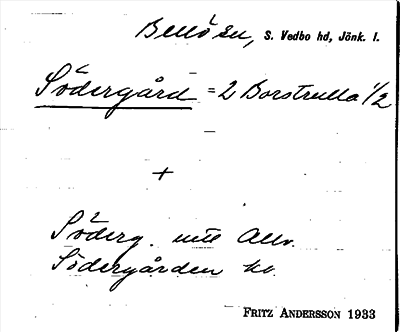 Bellö sn, S. Vedbo hd, Jönk. l.
Södergård = 2 Borstrulla 1/2
+
Söderg. utt Allv.
Södergården kv.
FRITZ ANDERSSON 1933